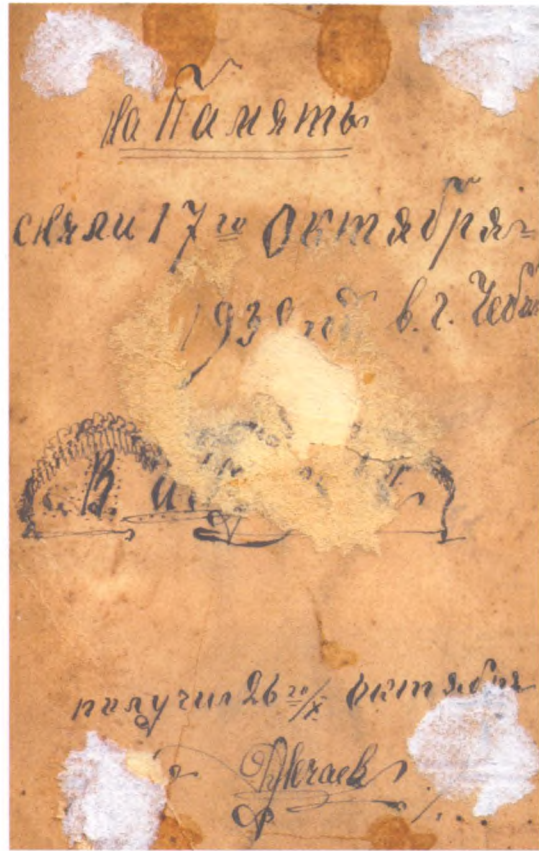 на Память
сняли 17го Октября
1930 в. г. Чеб
получил 26го/X октября